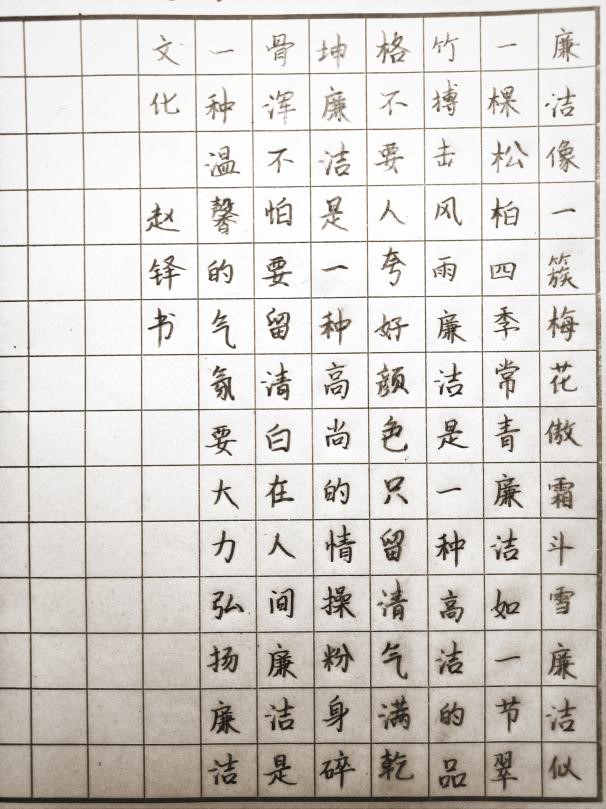 廉洁像一簇梅花傲霜斗雪廉洁似
一棵松柏四季常青廉洁如一节翠
竹搏击风雨廉洁是一种高洁的品
格不要人夸好颜色只留清气满乾
坤廉洁是一种高尚的情操粉身碎
骨浑不怕要留清白在人间廉洁是
一种温馨的气氛要大力弘扬廉洁
文化
赵铎书